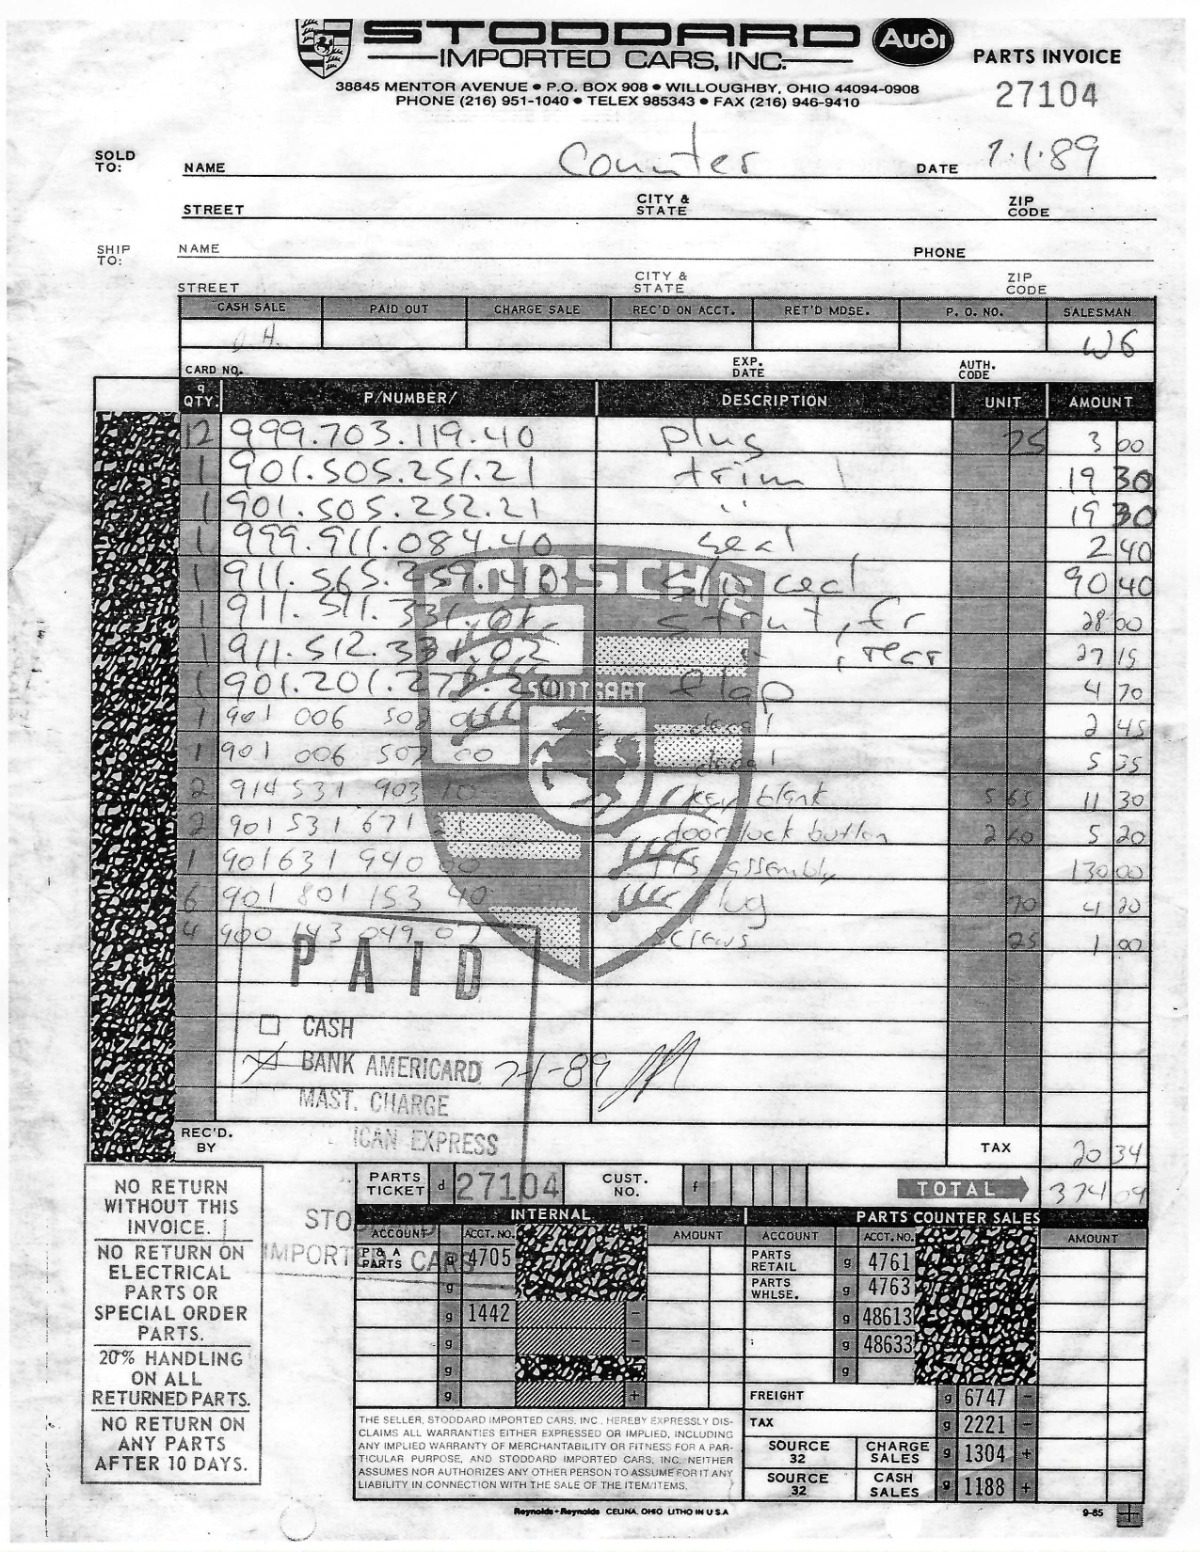 STODDARD
IMPORTED CARS, INC.
Audi
PARTS INVOICE
38845 MENTOR AVENUE • P.O. BOX 908 • WILLOUGHBY, OHIO 44094-0908
PHONE (216) 951-1040 • TELEX 985343 • FAX (216) 946-9410
27104
SOLD TO: NAME Counter DATE 7.1.89
STREET CITY & STATE ZIP CODE
SHIP TO: NAME PHONE
STREET CITY & STATE ZIP CODE
CASH SALE PAID OUT CHARGE SALE REC'D ON ACCT. RET'D MDSE. P. O. NO. SALESMAN
WG
CARD NO. EXP. DATE AUTH. CODE
q QTY. P/NUMBER/ DESCRIPTION UNIT AMOUNT
12 999.703.119.40 plug 25 3 00
1 901.505.251.21 trim 19 30
1 901.505.252.21 " 19 30
1 999.911.084.40 seal 2 40
1 911.565.259.40 s/r seal 90 40
1 911.511.331. strut, fr 28 00
1 911.512.331.02 " , rear 27 15
1 901.201.271.20 flap 4 70
1 901 006 502 00 decal 2 45
1 901 006 507 00 decal 5 35
2 914 531 903 10 key blank 5 65 11 30
2 901 531 671 door lock button 2 60 5 20
1 901 631 940 00 assembly 130 00
6 901 801 153 40 plug 70 4 20
4 900 143 049 07 screws 25 1 00
PORSCHE
STUTTGART
PAID
CASH
BANK AMERICARD 7-1-89
MAST. CHARGE
ICAN EXPRESS
STODDARD
IMPORTED CARS
REC'D. BY TAX 20 34
PARTS TICKET d 27104 CUST. NO. f TOTAL 374 09
INTERNAL PARTS COUNTER SALES
ACCOUNT ACCT. NO. AMOUNT ACCOUNT ACCT. NO. AMOUNT
P & A PARTS g 4705 PARTS RETAIL g 4761
g PARTS WHLSE. g 4763
g 1442 - g 48613
g - g 48633
g g
g + FREIGHT g 6747 -
TAX g 2221 -
SOURCE 32 CHARGE SALES g 1304 +
SOURCE 32 CASH SALES g 1188 +
NO RETURN
WITHOUT THIS
INVOICE.
NO RETURN ON
ELECTRICAL
PARTS OR
SPECIAL ORDER
PARTS.
20% HANDLING
ON ALL
RETURNED PARTS.
NO RETURN ON
ANY PARTS
AFTER 10 DAYS.
THE SELLER, STODDARD IMPORTED CARS, INC., HEREBY EXPRESSLY DIS-
CLAIMS ALL WARRANTIES EITHER EXPRESSED OR IMPLIED, INCLUDING
ANY IMPLIED WARRANTY OF MERCHANTABILITY OR FITNESS FOR A PAR-
TICULAR PURPOSE, AND STODDARD IMPORTED CARS, INC. NEITHER
ASSUMES NOR AUTHORIZES ANY OTHER PERSON TO ASSUME FOR IT ANY
LIABILITY IN CONNECTION WITH THE SALE OF THE ITEM/ITEMS.
Reynolds + Reynolds CELINA, OHIO LITHO IN U S A
9-85